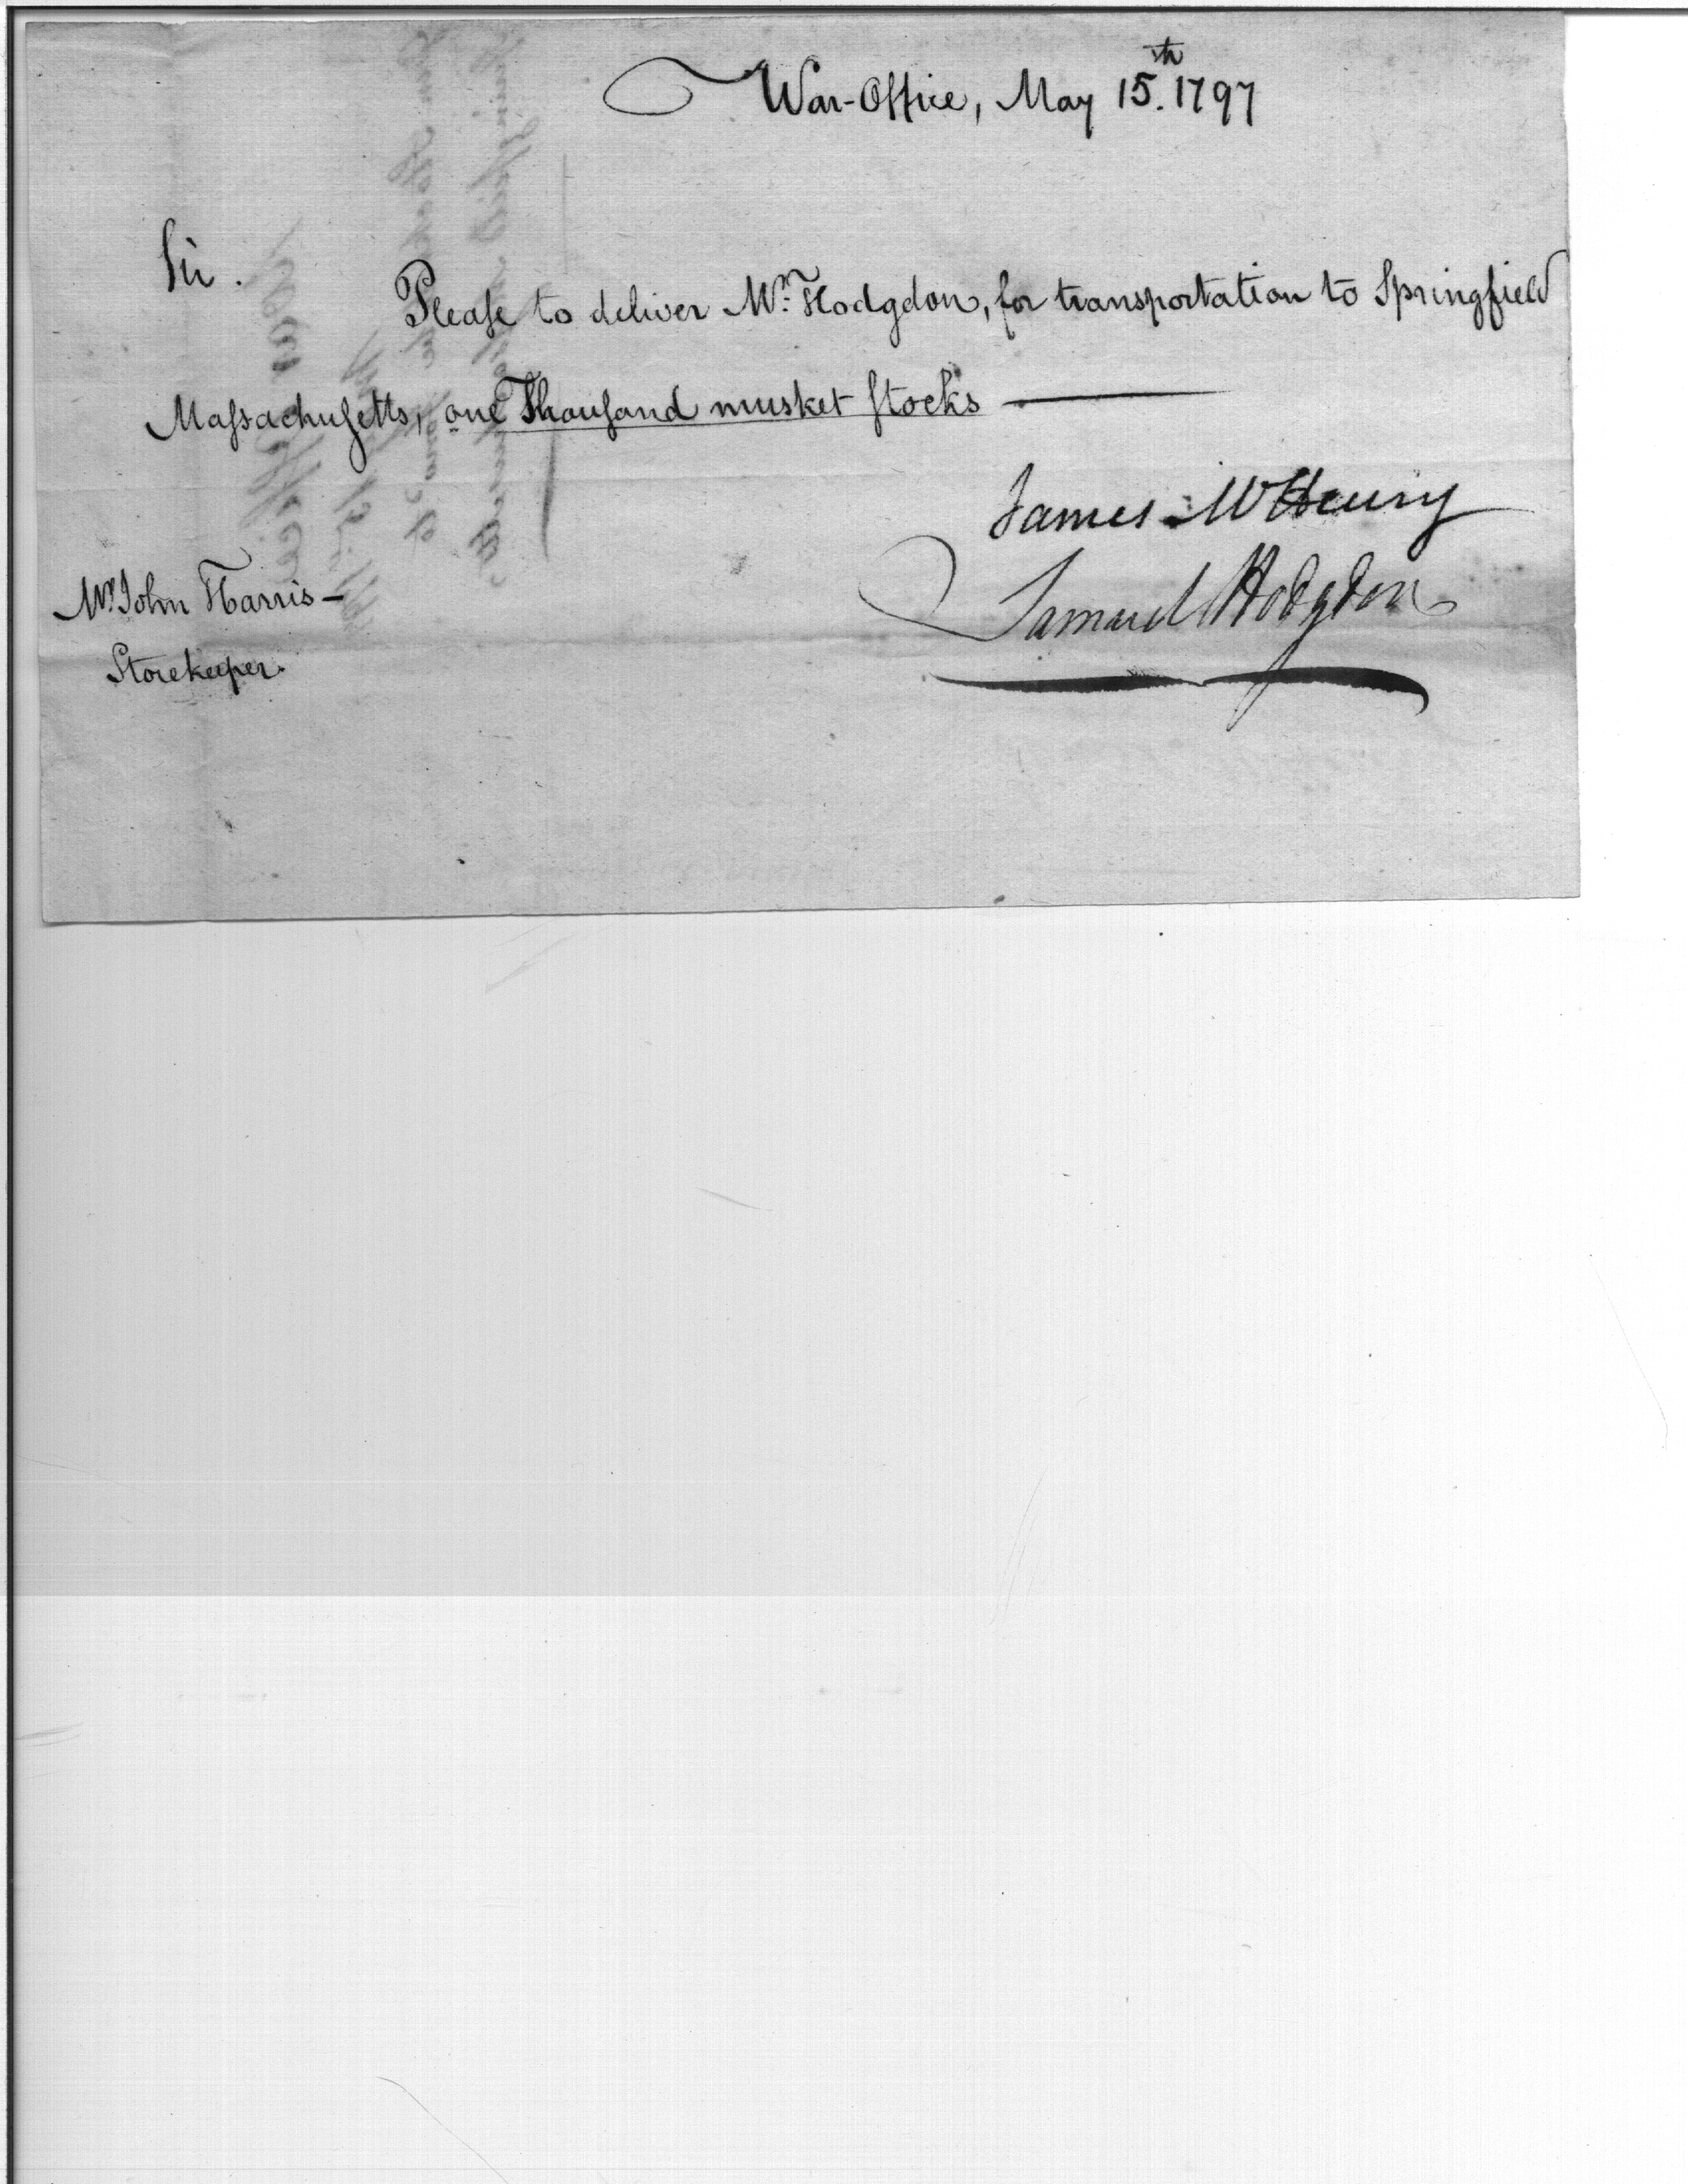 War-Office, May 15th. 1797
Sir.
Pleaſe to deliver Mr. Hodgdon, for transportation to Springfield
Maſsachuſetts, one Thouſand musket ſtocks
James McHenry
Samuel Hodgdon
Mr John Harris -
Storekeeper.